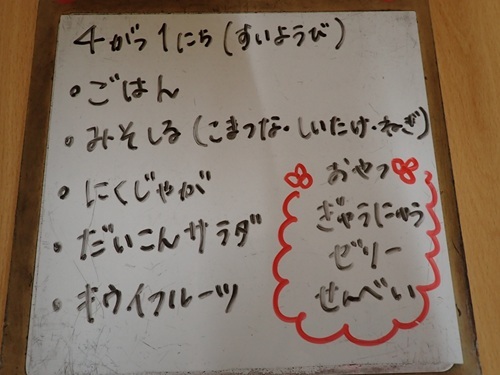 4がつ1にち(すいようび)
・ごはん
・みそしる(こまつな・しいたけ・ねぎ)
・にくじゃが
・だいこんサラダ
・キウイフルーツ
おやつ
ぎゅうにゅう
ゼリー
せんべい